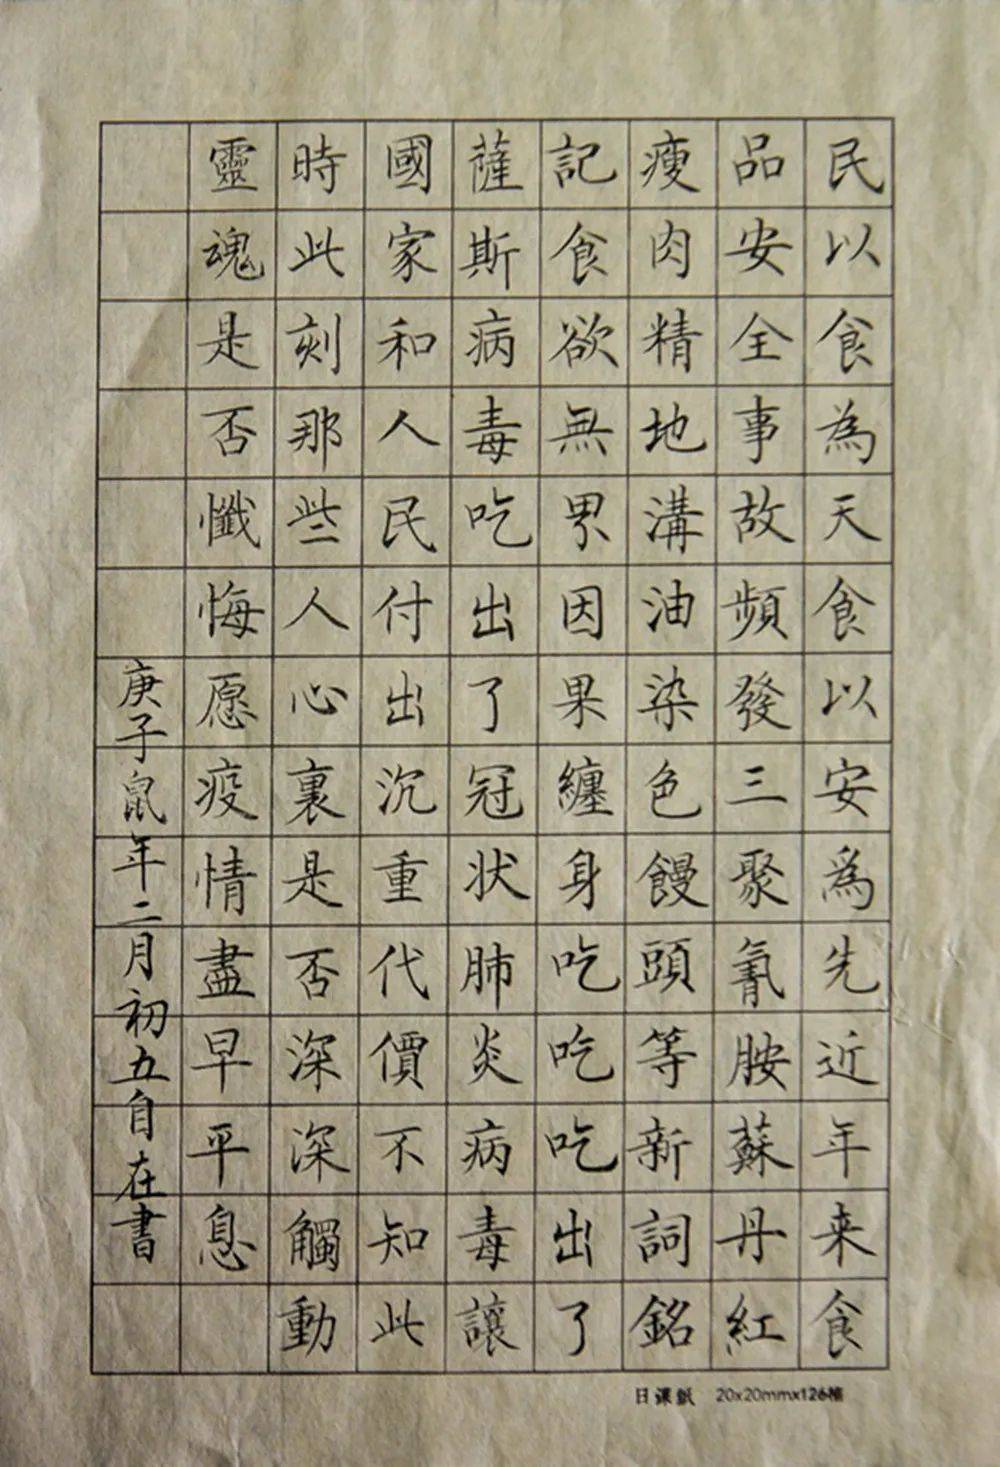 民以食為天食以安為先近年来食
品安全事故頻發三聚氰胺蘇丹紅
瘦肉精地溝油染色饅頭等新詞銘
記食欲無累因果纏身吃吃吃出了
薩斯病毒吃出了冠状肺炎病毒讓
國家和人民付出沉重代價不知此
時此刻那些人心裏是否深深觸動
靈魂是否懺悔愿疫情盡早平息
庚子鼠年二月初五自在書
日课紙 20x20mmx126格